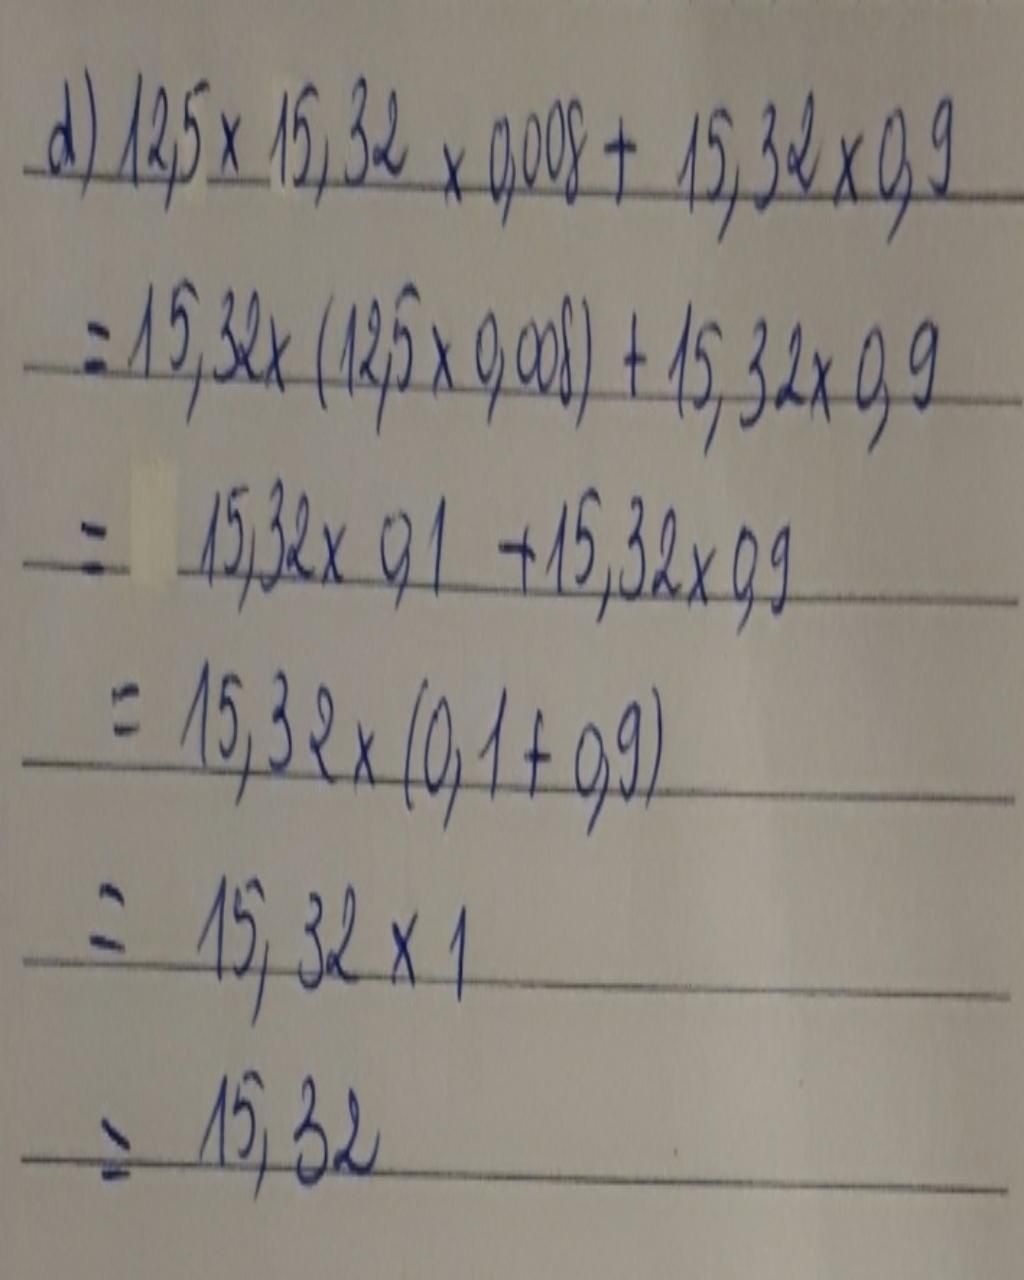 d) 12,5 x 15,32 x 0,008 + 15,32 x 0,9
= 15,32 x (12,5 x 0,008) + 15,32 x 0,9
= 15,32 x 0,1 + 15,32 x 0,9
= 15,32 x (0,1 + 0,9)
= 15,32 x 1
= 15,32